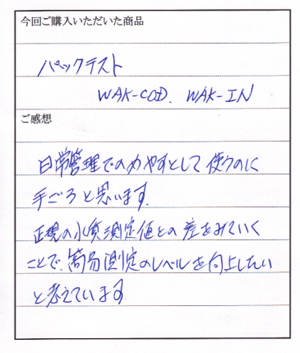 今回ご購入いただいた商品
パックテスト
WAK-COD. WAK-IN
ご感想
日常管理でのめやすとして使うのに
手ごろと思います.
正規の水質測定値との差をみていく
ことで、簡易測定のレベルを向上したい
と考えています